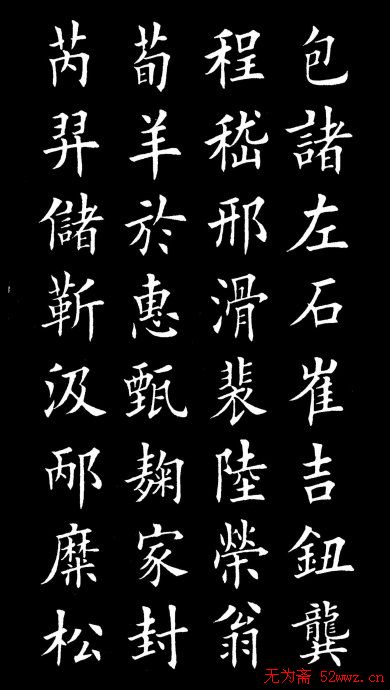 包諸左石崔吉鈕龔
程嵇邢滑裴陸榮翁
荀羊於惠甄麹家封
芮羿儲靳汲邴糜松
无为斋 52wwz.cn